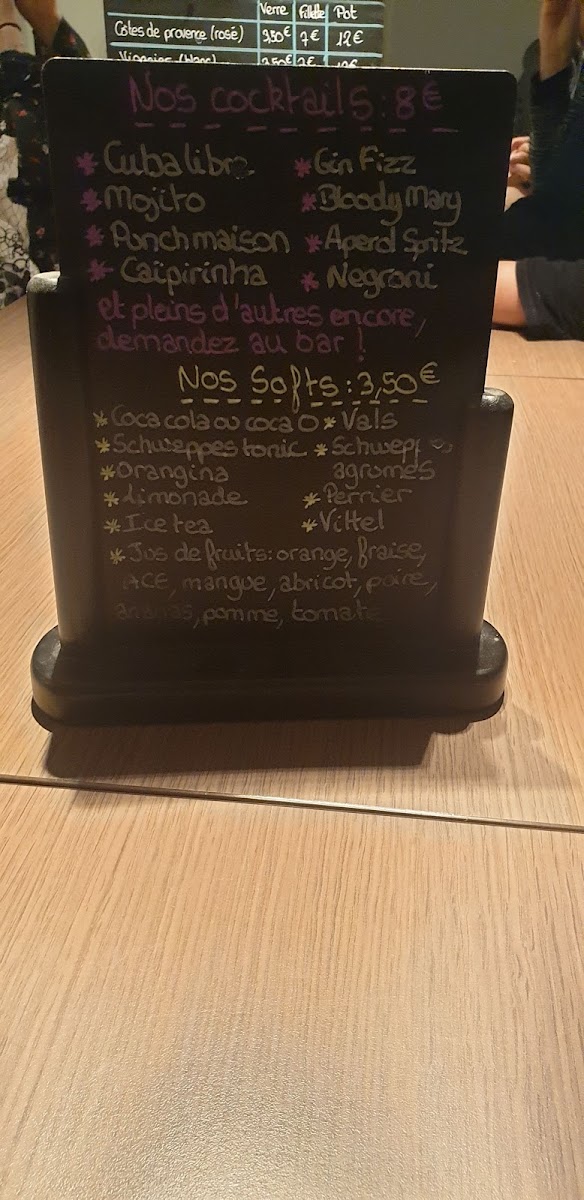 Verre Fillette Pot
Côtes de provence (rosé) 3,50€ 7€ 12€
Viognier (blanc)
Nos cocktails : 8€
* Cuba libre * Gin Fizz
* Mojito * Bloody Mary
* Punch maison * Aperol Spritz
* Caïpirinha * Negroni
et pleins d'autres encore,
demandez au bar !
Nos Softs : 3,50€
* Coca cola ou coca O * Vals
* Schweppes tonic * Schweppes
* Orangina agrumes
* Limonade * Perrier
* Ice tea * Vittel
* Jus de fruits: orange, fraise,
ACE, mangue, abricot, poire,
ananas, pomme, tomate